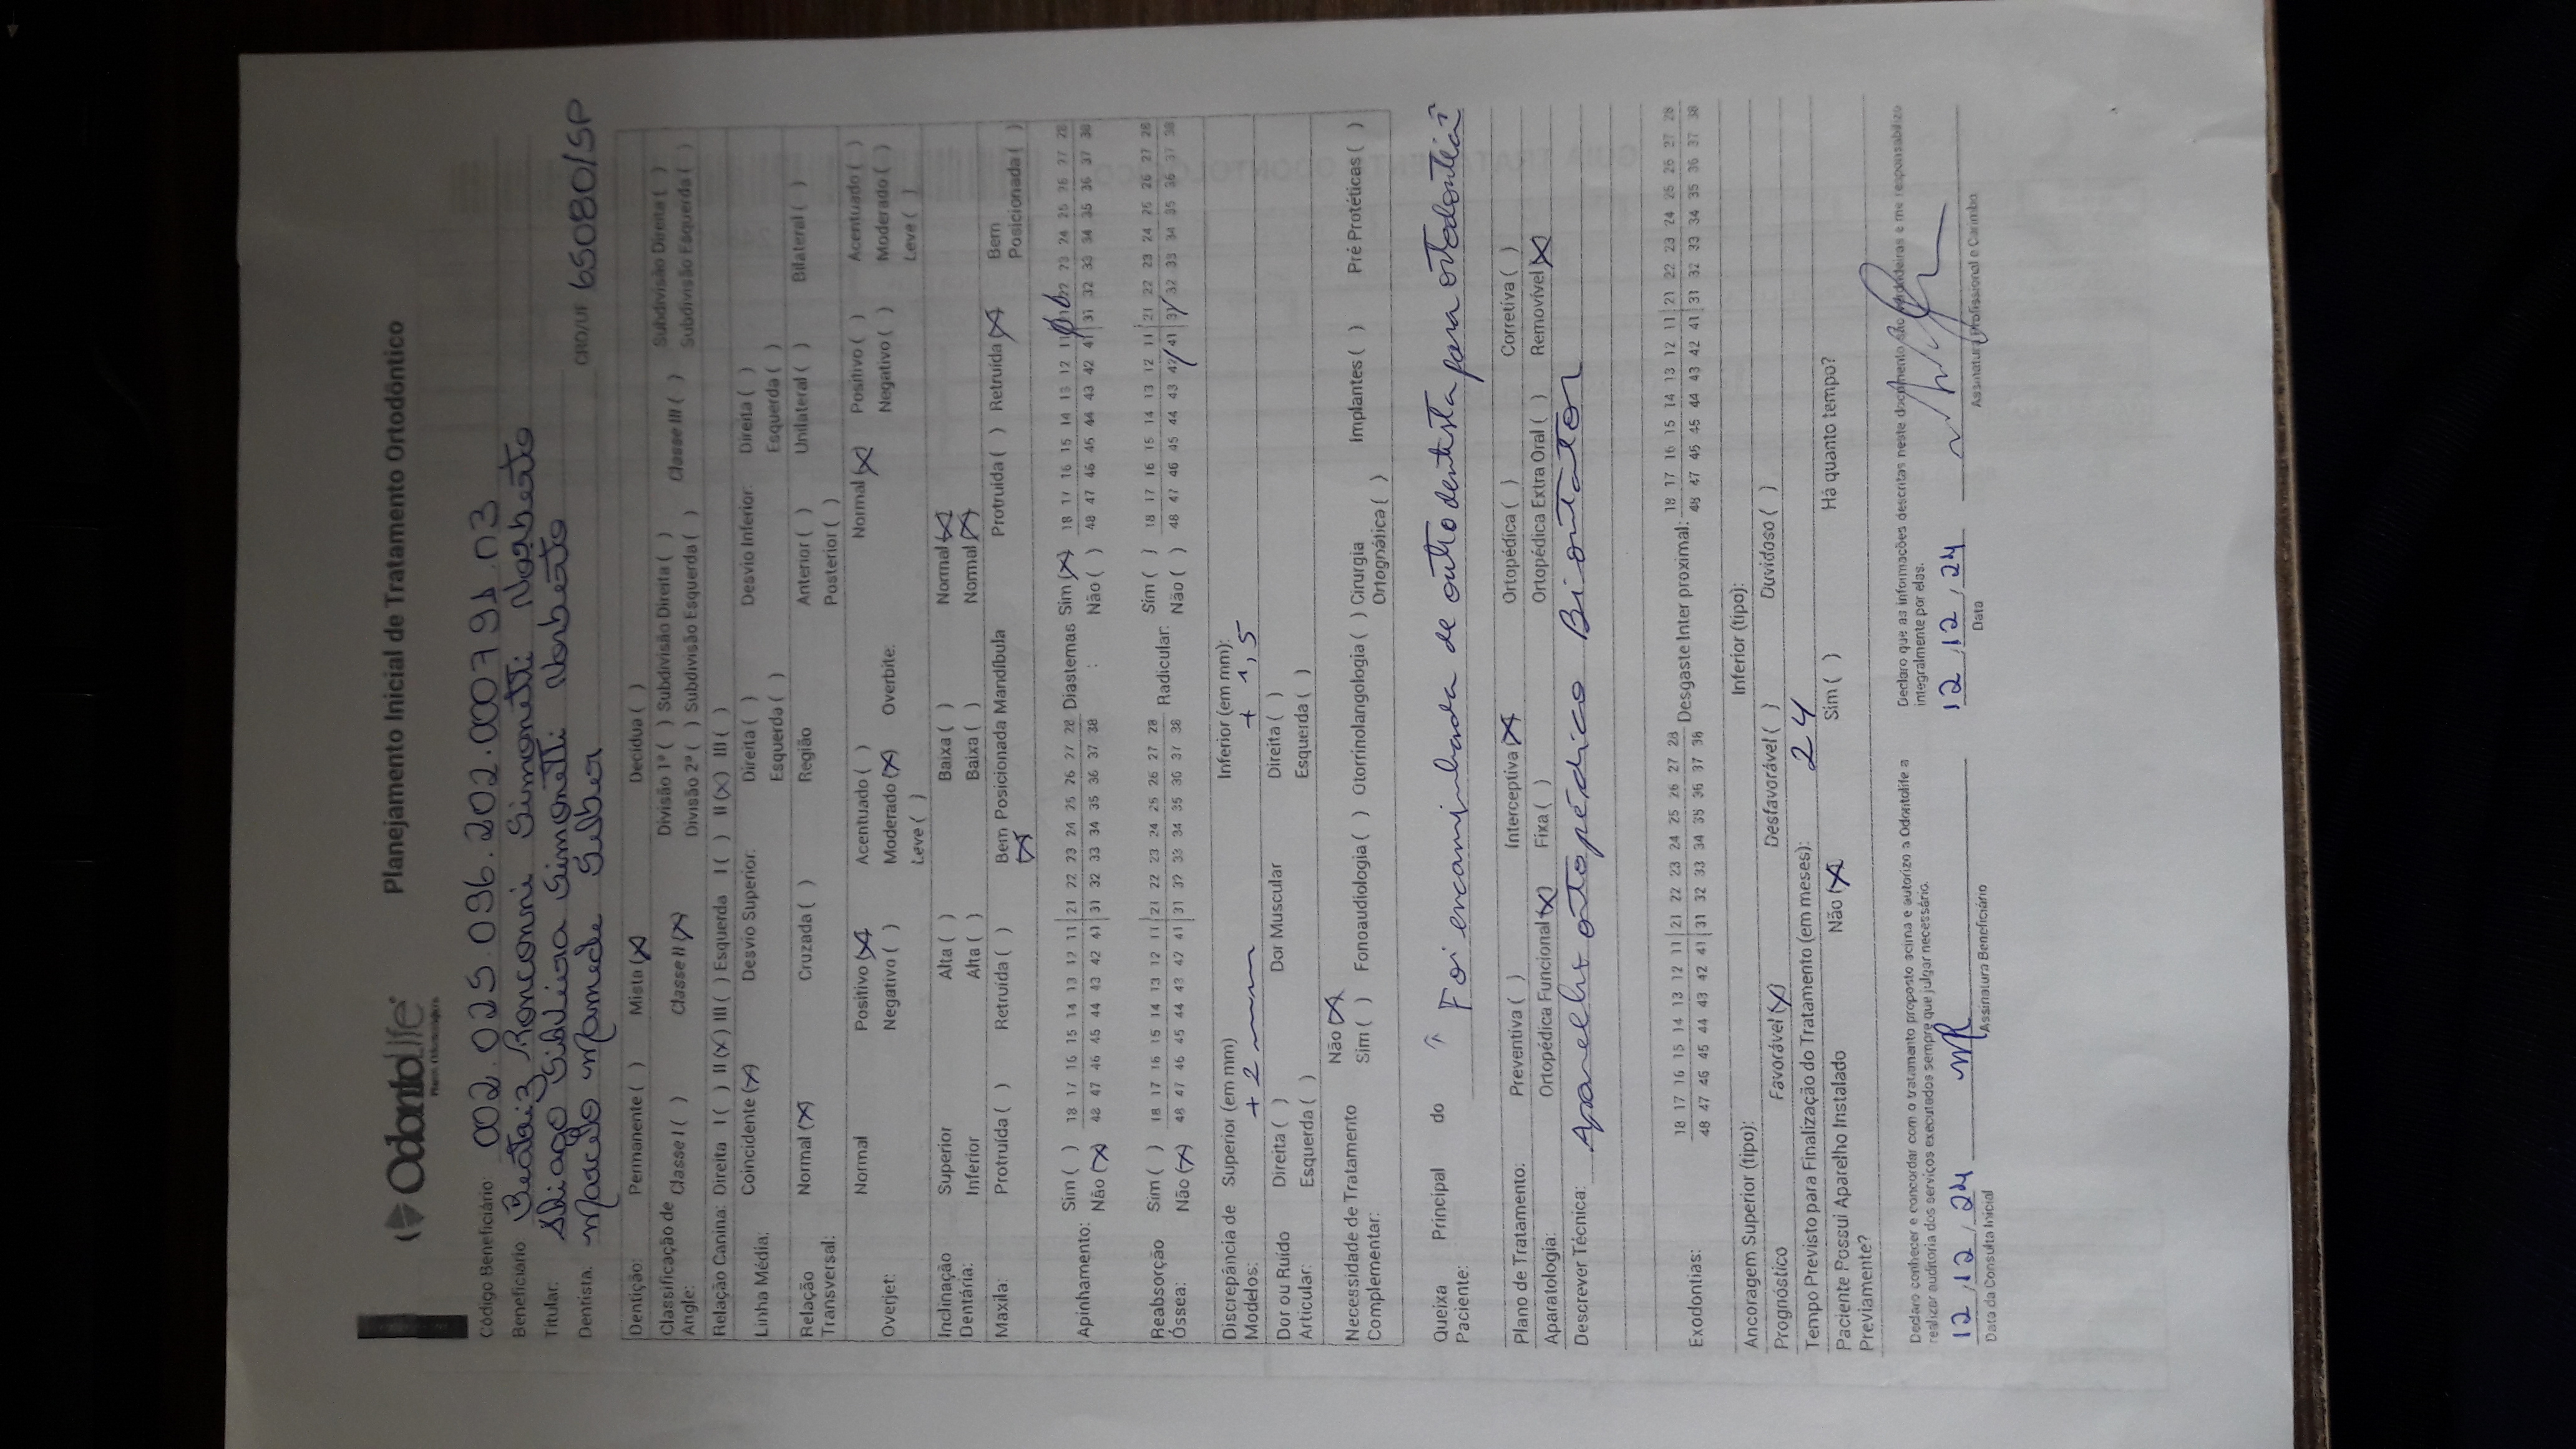 OdontoLife
Planos Odontológicos
Planejamento Inicial de Tratamento Ortodôntico
Código Beneficiário: 002.025.096.202.000791.03
Beneficiário Beatriz Ronconni Simonetti Norberto
Titular: Silveira Simonetti Norberto
Dentista: Marcelo Mamede CRO/UF 65080/SP
Dentição: Permanente ( ) Mista (X) Decídua ( )
Classificação de Angle: Classe I ( ) Classe II (X) Divisão 1ª ( ) Subdivisão Direita ( ) Classe III ( ) Subdivisão Direita ( )
Divisão 2ª ( ) Subdivisão Esquerda ( ) Subdivisão Esquerda ( )
Relação Canina: Direita I ( ) II (X) III ( ) Esquerda I ( ) II (X) III ( )
Linha Média: Coincidente (X) Desvio Superior: Direita ( ) Desvio Inferior: Direita ( )
Esquerda ( ) Esquerda ( )
Relação Transversal: Normal (X) Cruzada ( ) Região Anterior ( ) Unilateral ( ) Bilateral ( )
Posterior ( )
Overjet: Normal Positivo (X) Acentuado ( ) Overbite: Normal (X) Positivo ( ) Acentuado ( )
Negativo ( ) Moderado (X) Negativo ( ) Moderado ( )
Leve ( ) Leve ( )
Inclinação Dentária: Superior Alta ( ) Baixa ( ) Normal (X)
Inferior Alta ( ) Baixa ( ) Normal (X)
Maxila: Protruída ( ) Retruída ( ) Bem Posicionada (X) Mandíbula Protruída ( ) Retruída (X) Bem Posicionada ( )
Apinhamento: Sim ( ) 18 17 16 15 14 13 12 11 21 22 23 24 25 26 27 28 Diastemas: Sim (X) 18 17 16 15 14 13 12 11 21 22 23 24 25 26 27 28
Não (X) 48 47 46 45 44 43 42 41 31 32 33 34 35 36 37 38 Não ( ) 48 47 46 45 44 43 42 41 31 32 33 34 35 36 37 38
Reabsorção Óssea: Sim ( ) 18 17 16 15 14 13 12 11 21 22 23 24 25 26 27 28 Radicular: Sim ( ) 18 17 16 15 14 13 12 11 21 22 23 24 25 26 27 28
Não (X) 48 47 46 45 44 43 42 41 31 32 33 34 35 36 37 38 Não ( ) 48 47 46 45 44 43 42 41 31 32 33 34 35 36 37 38
Discrepância de Modelos: Superior (em mm) + 2 mm Inferior (em mm): + 1,5
Dor ou Ruído Articular: Direita ( ) Dor Muscular Direita ( )
Esquerda ( ) Esquerda ( )
Necessidade de Tratamento Complementar: Não (X)
Sim ( ) Fonoaudiologia ( ) Otorrinolangologia ( ) Cirurgia Ortognática ( ) Implantes ( ) Pré Protéticas ( )
Queixa Principal do Paciente: Foi encaminhada de outro dentista para ortodontia
Plano de Tratamento: Preventiva ( ) Interceptiva (X) Ortopédica ( ) Corretiva ( )
Aparatologia: Ortopédica Funcional (X) Fixa ( ) Ortopédica Extra Oral ( ) Removível (X)
Descrever Técnica: Aparelho ortopédico Bionator
Exodontias: 18 17 16 15 14 13 12 11 21 22 23 24 25 26 27 28 Desgaste Inter proximal: 18 17 16 15 14 13 12 11 21 22 23 24 25 26 27 28
48 47 46 45 44 43 42 41 31 32 33 34 35 36 37 38 48 47 46 45 44 43 42 41 31 32 33 34 35 36 37 38
Ancoragem Superior (tipo): Inferior (tipo):
Prognóstico Favorável (X) Desfavorável ( ) Duvidoso ( )
Tempo Previsto para Finalização do Tratamento (em meses): 24
Paciente Possui Aparelho Instalado Previamente? Não (X) Sim ( ) Há quanto tempo?
Declaro conhecer e concordar com o tratamento proposto acima e autorizo a Odontolife a
realizar auditoria dos serviços executados sempre que julgar necessário.
Declaro que as informações descritas neste documento são verdadeiras e me responsabilizo
integralmente por elas.
12,12,24
Data da Consulta Inicial
Assinatura Beneficiário
12,12,24
Data
Assinatura Profissional e Carimbo